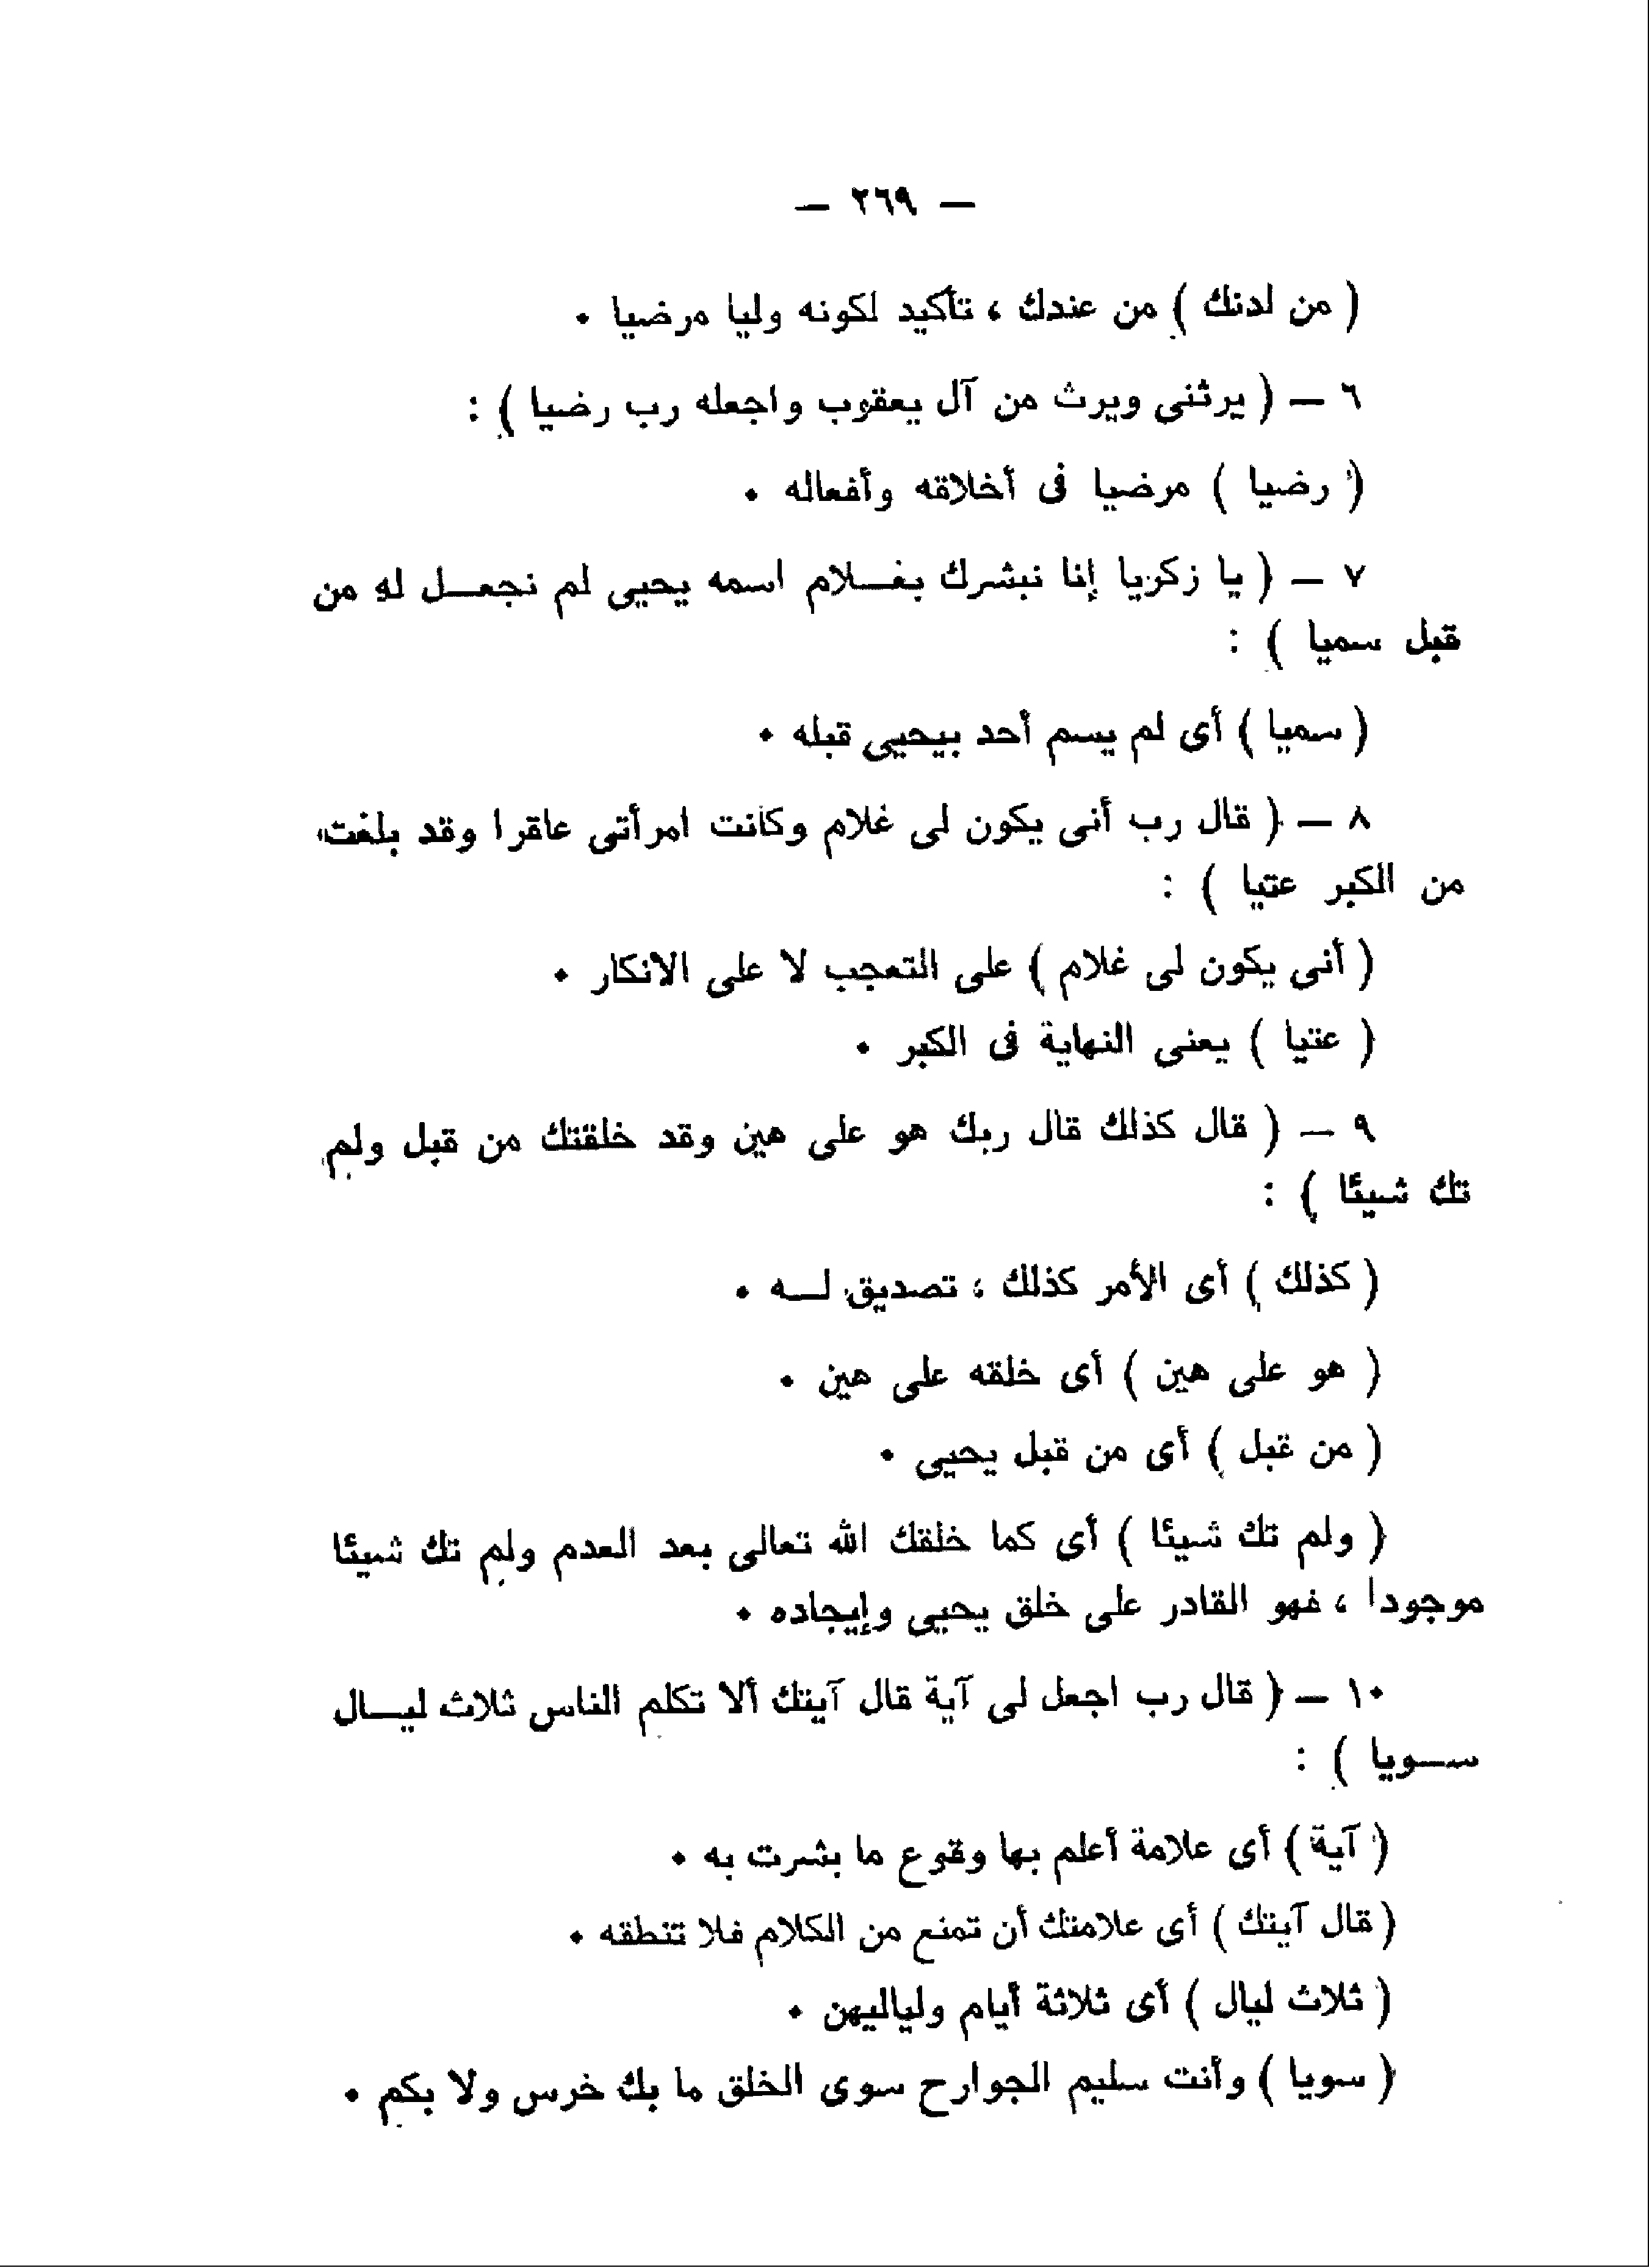 — ٢٦٩ —
( من لدنك ) من عندك ، تأكيد لكونه وليا مرضيا ٠
٦ — ( يرثنى ويرث من آل يعقوب واجعله رب رضيا ) :
( رضيا ) مرضيا فى أخلاقه وأفعاله ٠
٧ — ( يا زكريا إنا نبشرك بغـــلام اسمه يحيى لم نجعـــل له من
قبل سميا ) :
( سميا ) أى لم يسم أحد بيحيى قبله ٠
٨ — ( قال رب أنى يكون لى غلام وكانت امرأتى عاقرا وقد بلغت
من الكبر عتيا ) :
( أنى يكون لى غلام ) على التعجب لا على الانكار ٠
( عتيا ) يعنى النهاية فى الكبر ٠
٩ — ( قال كذلك قال ربك هو على هين وقد خلقتك من قبل ولم
تك شيئا ) :
( كذلك ) أى الأمر كذلك ، تصديق لـــه ٠
( هو على هين ) أى خلقه على هين ٠
( من قبل ) أى من قبل يحيى ٠
( ولم تك شيئا ) أى كما خلقك الله تعالى بعد العدم ولم تك شيئا
موجودا ، فهو القادر على خلق يحيى وإيجاده ٠
١٠ — ( قال رب اجعل لى آية قال آيتك ألا تكلم الناس ثلاث ليـــال
ســـويا ) :
( آية ) أى علامة أعلم بها وقوع ما بشرت به ٠
( قال آيتك ) أى علامتك أن تمنع من الكلام فلا تنطقه ٠
( ثلاث ليال ) أى ثلاثة أيام ولياليهن ٠
( سويا ) وأنت سليم الجوارح سوى الخلق ما بك خرس ولا بكم ٠